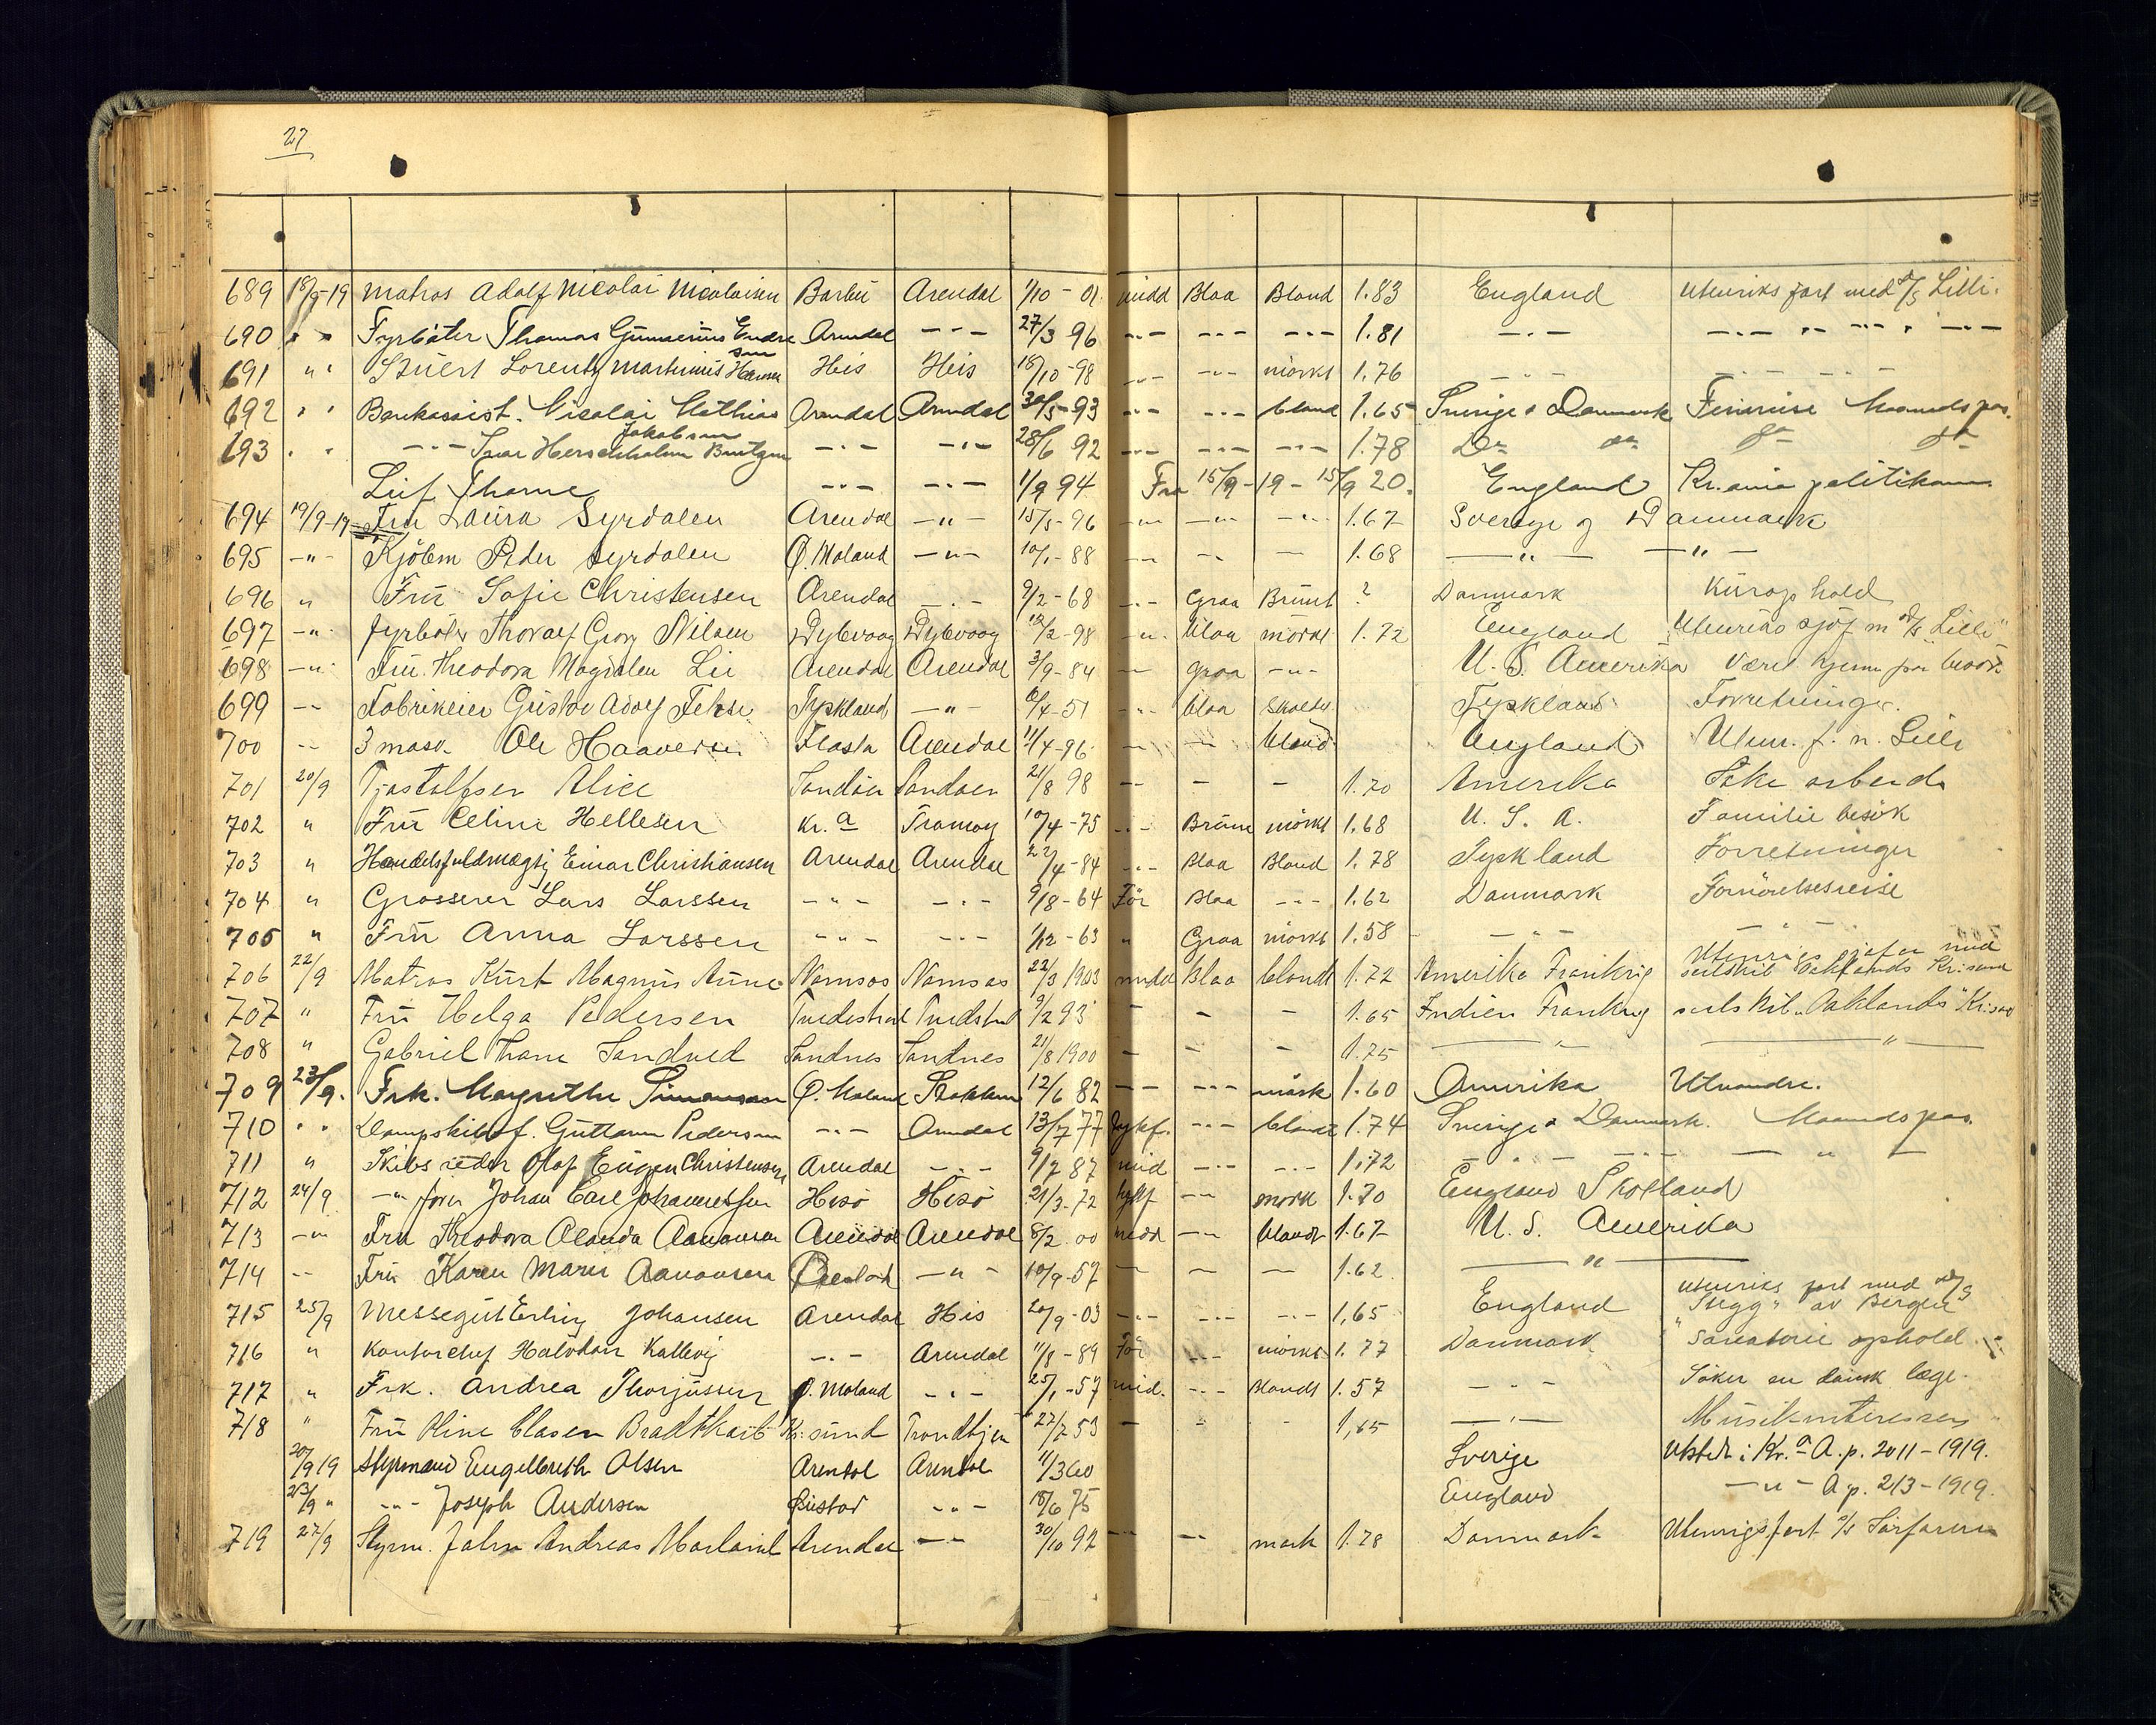 27
689 18/9-19 Matros Adolf Nicolai Nicolaisen Barbu Arendal 1/10-01 midd Blaa Blond 1.83 England Utenriks fart med D/S Lilli.
690 " " Fyrböter Thomas Gunnerius Endre sen Arendal -"- 27/3 96 -"- -"- -"- 1.81 -"- -"- " -"- " -"-
691 " " Stuert Lorentz Martinius Hansen His His 18/10-98 -"- -"- mörkt 1.76 -"- -"- -"-
692 " " Bankassist. Nicolai Mathias Jakobsen Arendal Arendal 30/5-93 -"- -"- blond 1.65 Sverige & Danmark Ferierise Maanedspas.
693 " " -"- Ivar Herschholm -"- -"- 28/6 92 -"- -"- -"- 1.78 Do do do do
Leif Thorne -"- -"- 1/9 94 Fra 15/9-19 - 15/9 20. England Kr.ania politikam
694 19/9-19 Fru Laura Syrdalen Arendal -"- 15/5-96 -"- -"- -"- 1.67 Sverige og Danmark
695 -"- Kjöbm Peder Syrdalen Ø. Moland -"- 10/1-88 -"- -"- - 1.68 -"- -"-
696 " Fru Sofie Christensen Arendal -"- 9/2-68 -"- Graa Brunt ? Danmark Kurophold
697 -"- Fyrböter Thoralf Georg Nilsen Dybvaag Dybvaag 12/2-98 -"- blaa mörkt 1.72 England Utenriks sjöf m D/S "Lilli"
698 -"- Fru Theodora Magdalen Lie Arendal Arendal 3/9-84 - graa -"- U. S. Amerika Været hjemme paa besök
699 -"- Fabrikeier Gustav Adolf Fehse Tyskland -"- 6/4-51 -"- blaa Skaldet Tyskland Forretninger.
700 -"- 3 mask. Ole Haaversen Flosta Arendal 11/4-96 - - blond England Utenr. f. m. Lilli
701 20/9 Tjostolfsen Alice Sandöen Sandöen 21/8 98 - - - 1.70 Amerika Söke arbeide
702 " Fru Celine Hellesen Kr.a Tromöy 10/4-75 -"- Brune mörkt 1.68 U. S. A. Familie besök
703 " Handelsfuldmægtig Einar Christiansen Arendal Arendal 22/4-84 -"- Blaa Blond 1.78 Tyskland Forretninger
704 " Grosserer Lars Larssen -"- -"- 9/8-64 För Blaa -"- 1.62 Danmark Fornöielsesreise
705 " Fru Anna Larssen -"- -"- 1/12-63 " Graa mörkt 1.58 -"- -"-
706 22/9 Matros Kurt Magnus Aune Namsos Namsos 22/3 1903 midd blaa blondt 1.72 Amerika Frankrig Utenrigs sjöfar med seilskib Oaklands Kr:sand
707 " Fru Helga Pedersen Tvedestrand Tvedestrand 9/2 93 - - - 1.65 Indien Frankrig seilskib "Oaklands" Kr:sand
708 " Gabriel Thane Sandved Sandnes Sandnes 21/8 1900 - - - 1.75 -"- -"-
709 23/9. Frk. Margrethe Simonsen Ø. Moland Stokken 12/6 82 -"- -"- mörk 1.60 Amerika Utvandre.
710 " " Dampskibsf. Guttorm Pedersen -"- Arendal 13/7 77 kykf. -"- blondt 1.74 Sverige & Danmark. Maanedspas.
711 " Skibsreder Olaf Eugen Christensen Arendal -"- 9/7 87 mid -"- -"- 1.72 -"- -"- -"-
712 24/9 -"- förer Johan Carl Johannessen Hisö Hisö 21/3-72 kykf -"- mörk 1.70 England Skotland
713 -"- Fru Theodora Olanda Aanonsen Arendal Arendal 8/2 00 midd -"- blondt 1.67 U. S. Amerika
714 -"- Fru Karen Marie Aanonsen -"- 10/9-57 - - - 1.62. -"-
715 25/9 Messegut Erling Johansen Arendal His 20/9-03 -"- -"- -"- 1,65 England Utenriks fart med D/S "Snygg" av Bergen
716 " Kontorchef Halvdan Kallevig -"- Arendal 11/8-89 För -"- mörkt 1.77 Danmark Sanatorie ophold.
717 " Frk. Andrea Thorjussen Ø. Moland -"- 25/1-57 mid. -"- Blondt 1.57 -"- Söker en dansk læge.
718 " Fru Oline Clasen Bradtkaib Kr:sund Trondhjem 27/7 53 - - - 1,65 -"- Musikinteresser
20/9 19 Styrmand Engelbreth Olsen Arendal Arendal 11/3 60 Sverige Utstedt i Kr.a A. p. 2011-1919.
23/9 " -"- Joseph Andersen -"- 18/6 75 England -"- A p. 213-1919.
719 27/9 Styrm. John Andreas Morland Arendal -"- 30/10 92 -"- -"- mörk 1.78 Danmark Utenrigsfart S/S Sörfareren